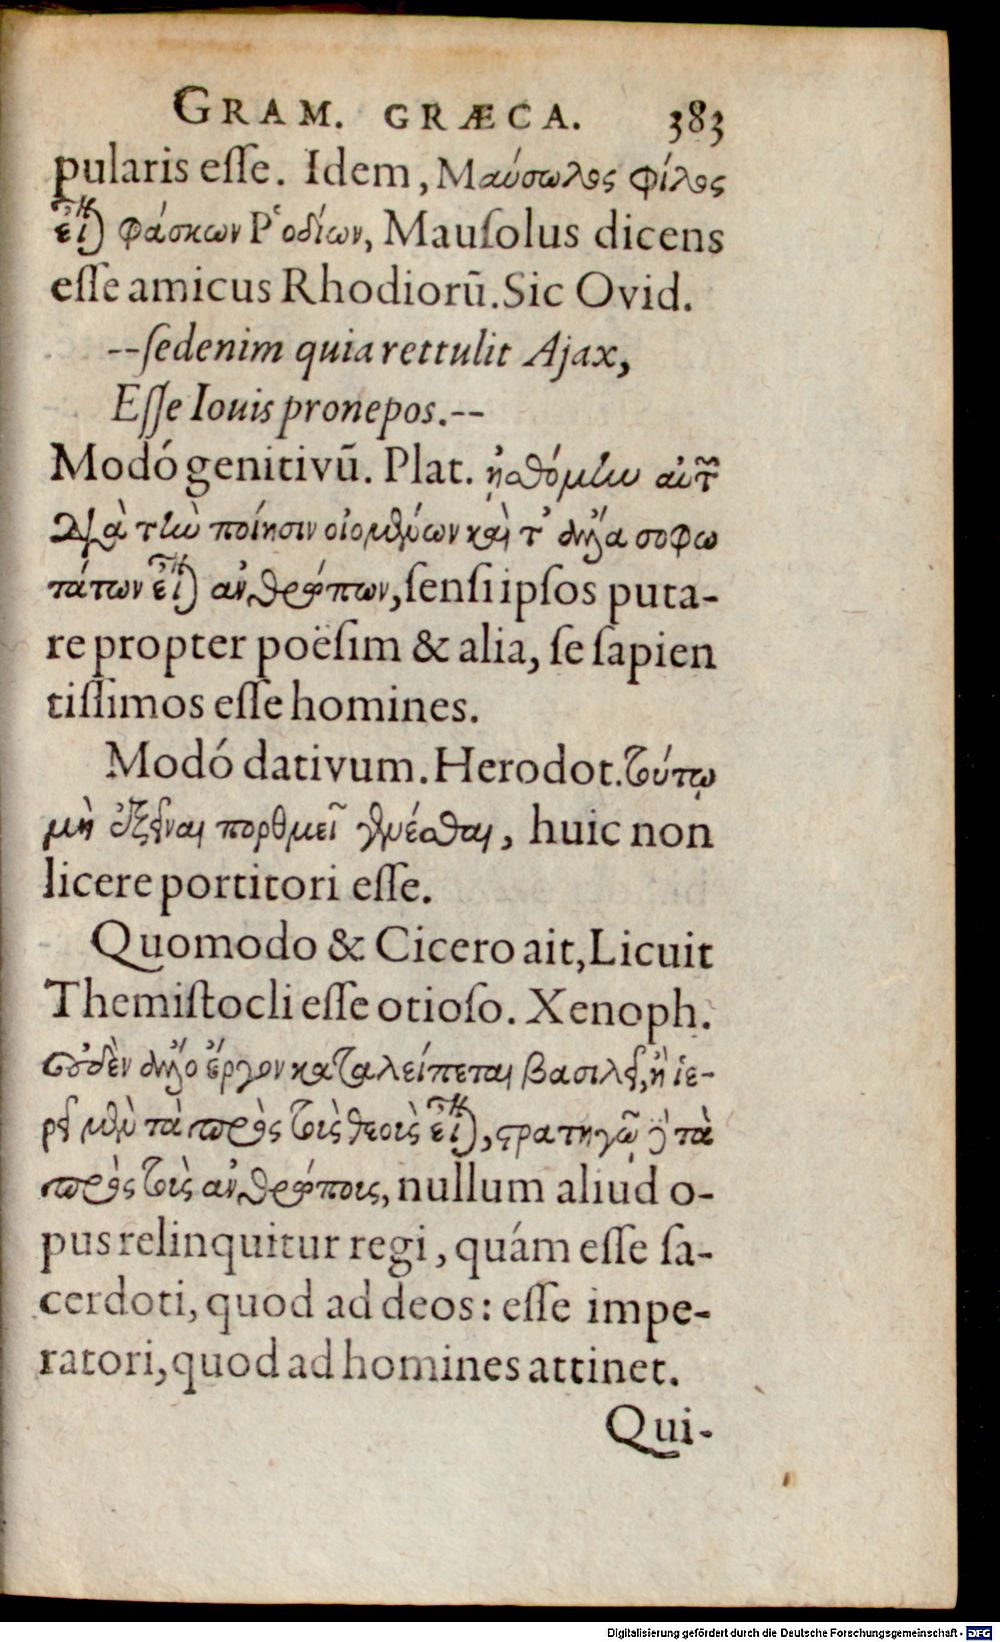 GRAM. GRÆCA. 383
pularis eſſe. Idem, Μαύσωλος φίλος
εἶναι φάσκων Ῥοδίων, Mauſolus dicens
eſſe amicus Rhodiorū. Sic Ovid.
--ſedenim quia rettulit Ajax,
Eſſe Iouis pronepos.--
Modó genitivū. Plat. ᾐσθόμην αὐτῶν
διὰ τὴν ποίησιν οἰομένων καὶ τ' ἄλλα σοφω
τάτων εἶναι ἀνθρώπων, ſenſi ipſos puta-
re propter poëſim & alia, ſe ſapien
tiſſimos eſſe homines.
Modó dativum. Herodot. τούτῳ
μὴ ἐξεῖναι πορθμεῖ γενέσθαι, huic non
licere portitori eſſe.
Quomodo & Cicero ait, Licuit
Themiſtocli eſſe otioſo. Xenoph.
οὐδὲν ἄλλο ἔργον καταλείπεται βασιλεῖ, ἢ ἱε-
ρεῖ μὲν τὰ πρὸς τοὺς θεοὺς εἶναι, στρατηγῷ δὲ τὰ
πρὸς τοὺς ἀνθρώπους, nullum aliud o-
pus relinquitur regi, quám eſſe ſa-
cerdoti, quod ad deos: eſſe impe-
ratori, quod ad homines attinet.
Qui-
Digitalisierung gefördert durch die Deutsche Forschungsgemeinschaft - DFG